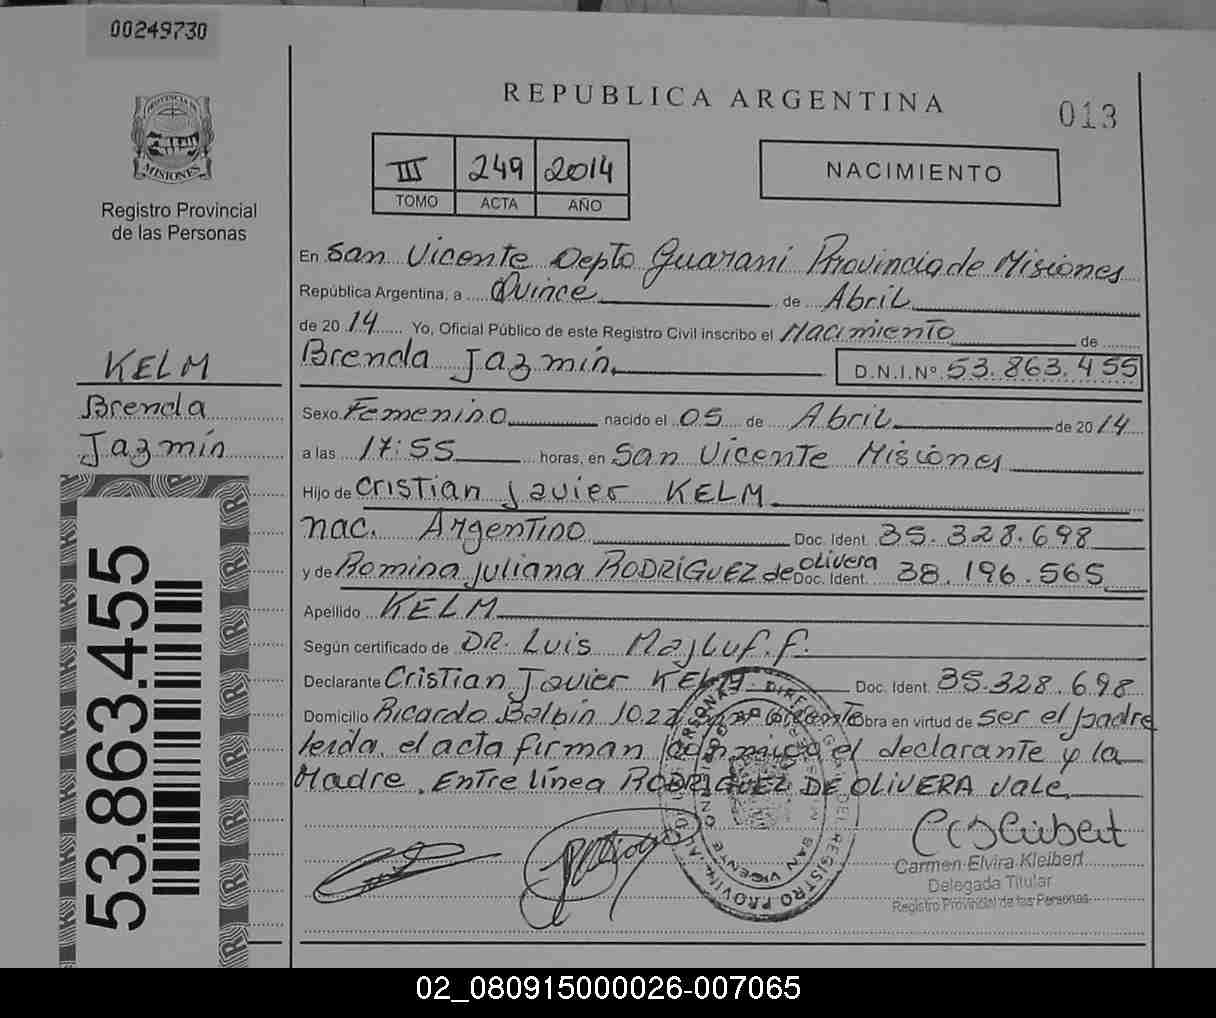 00249730
PROVINCIA DE
MISIONES
Registro Provincial
de las Personas
REPUBLICA ARGENTINA
013
III 249 2014
TOMO ACTA AÑO
NACIMIENTO
En San Vicente Depto Guarani Provincia de Misiones
República Argentina, a Quince de Abril
de 2014 Yo, Oficial Público de este Registro Civil inscribo el Nacimiento de
Brenda Jazmín D.N.I.Nº 53.863.455
KELM
Brenda
Jazmín
Sexo Femenino nacido el 05 de Abril de 2014
a las 17:55 horas, en San Vicente Misiones
Hijo de Cristian Javier KELM
nac. Argentino Doc. Ident. 35.328.698
y de Romina Juliana RODRÍGUEZ de olivera Doc. Ident. 38.196.565
Apellido KELM
Según certificado de DR. Luis Majluf. f.
Declarante Cristian Javier KELM Doc. Ident. 35.328.698
Domicilio Ricardo Balbín San Vicente Obra en virtud de ser el padre
leida el acta firman conmigo el declarante y la
Madre. Entre línea RODRIGUEZ DE OLIVERA Vale
53.863.455
Carmen Elvira Kleibert
Delegada Titular
Registro Provincial de las Personas
02_080915000026-007065